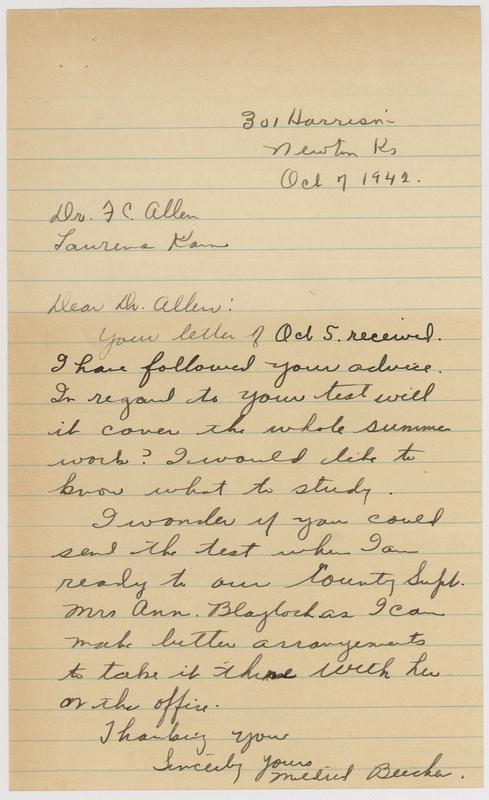 301 Harrison
Newton Ks
Oct 7 1942.
Dr. F C. Allen
Lawrence Kan
Dear Dr. Allen:
Your letter of Oct 5. received.
I have followed your advice.
In regard to your test will
it cover the whole summer
work? I would like to
know what to study.
I wonder if you could
send the test when I am
ready to our County Supt.
Mrs Ann. Blaylock as I can
make better arrangements
to take it there with her
or the office.
Thanking you
Sincerly yours
Mildred Beecher.